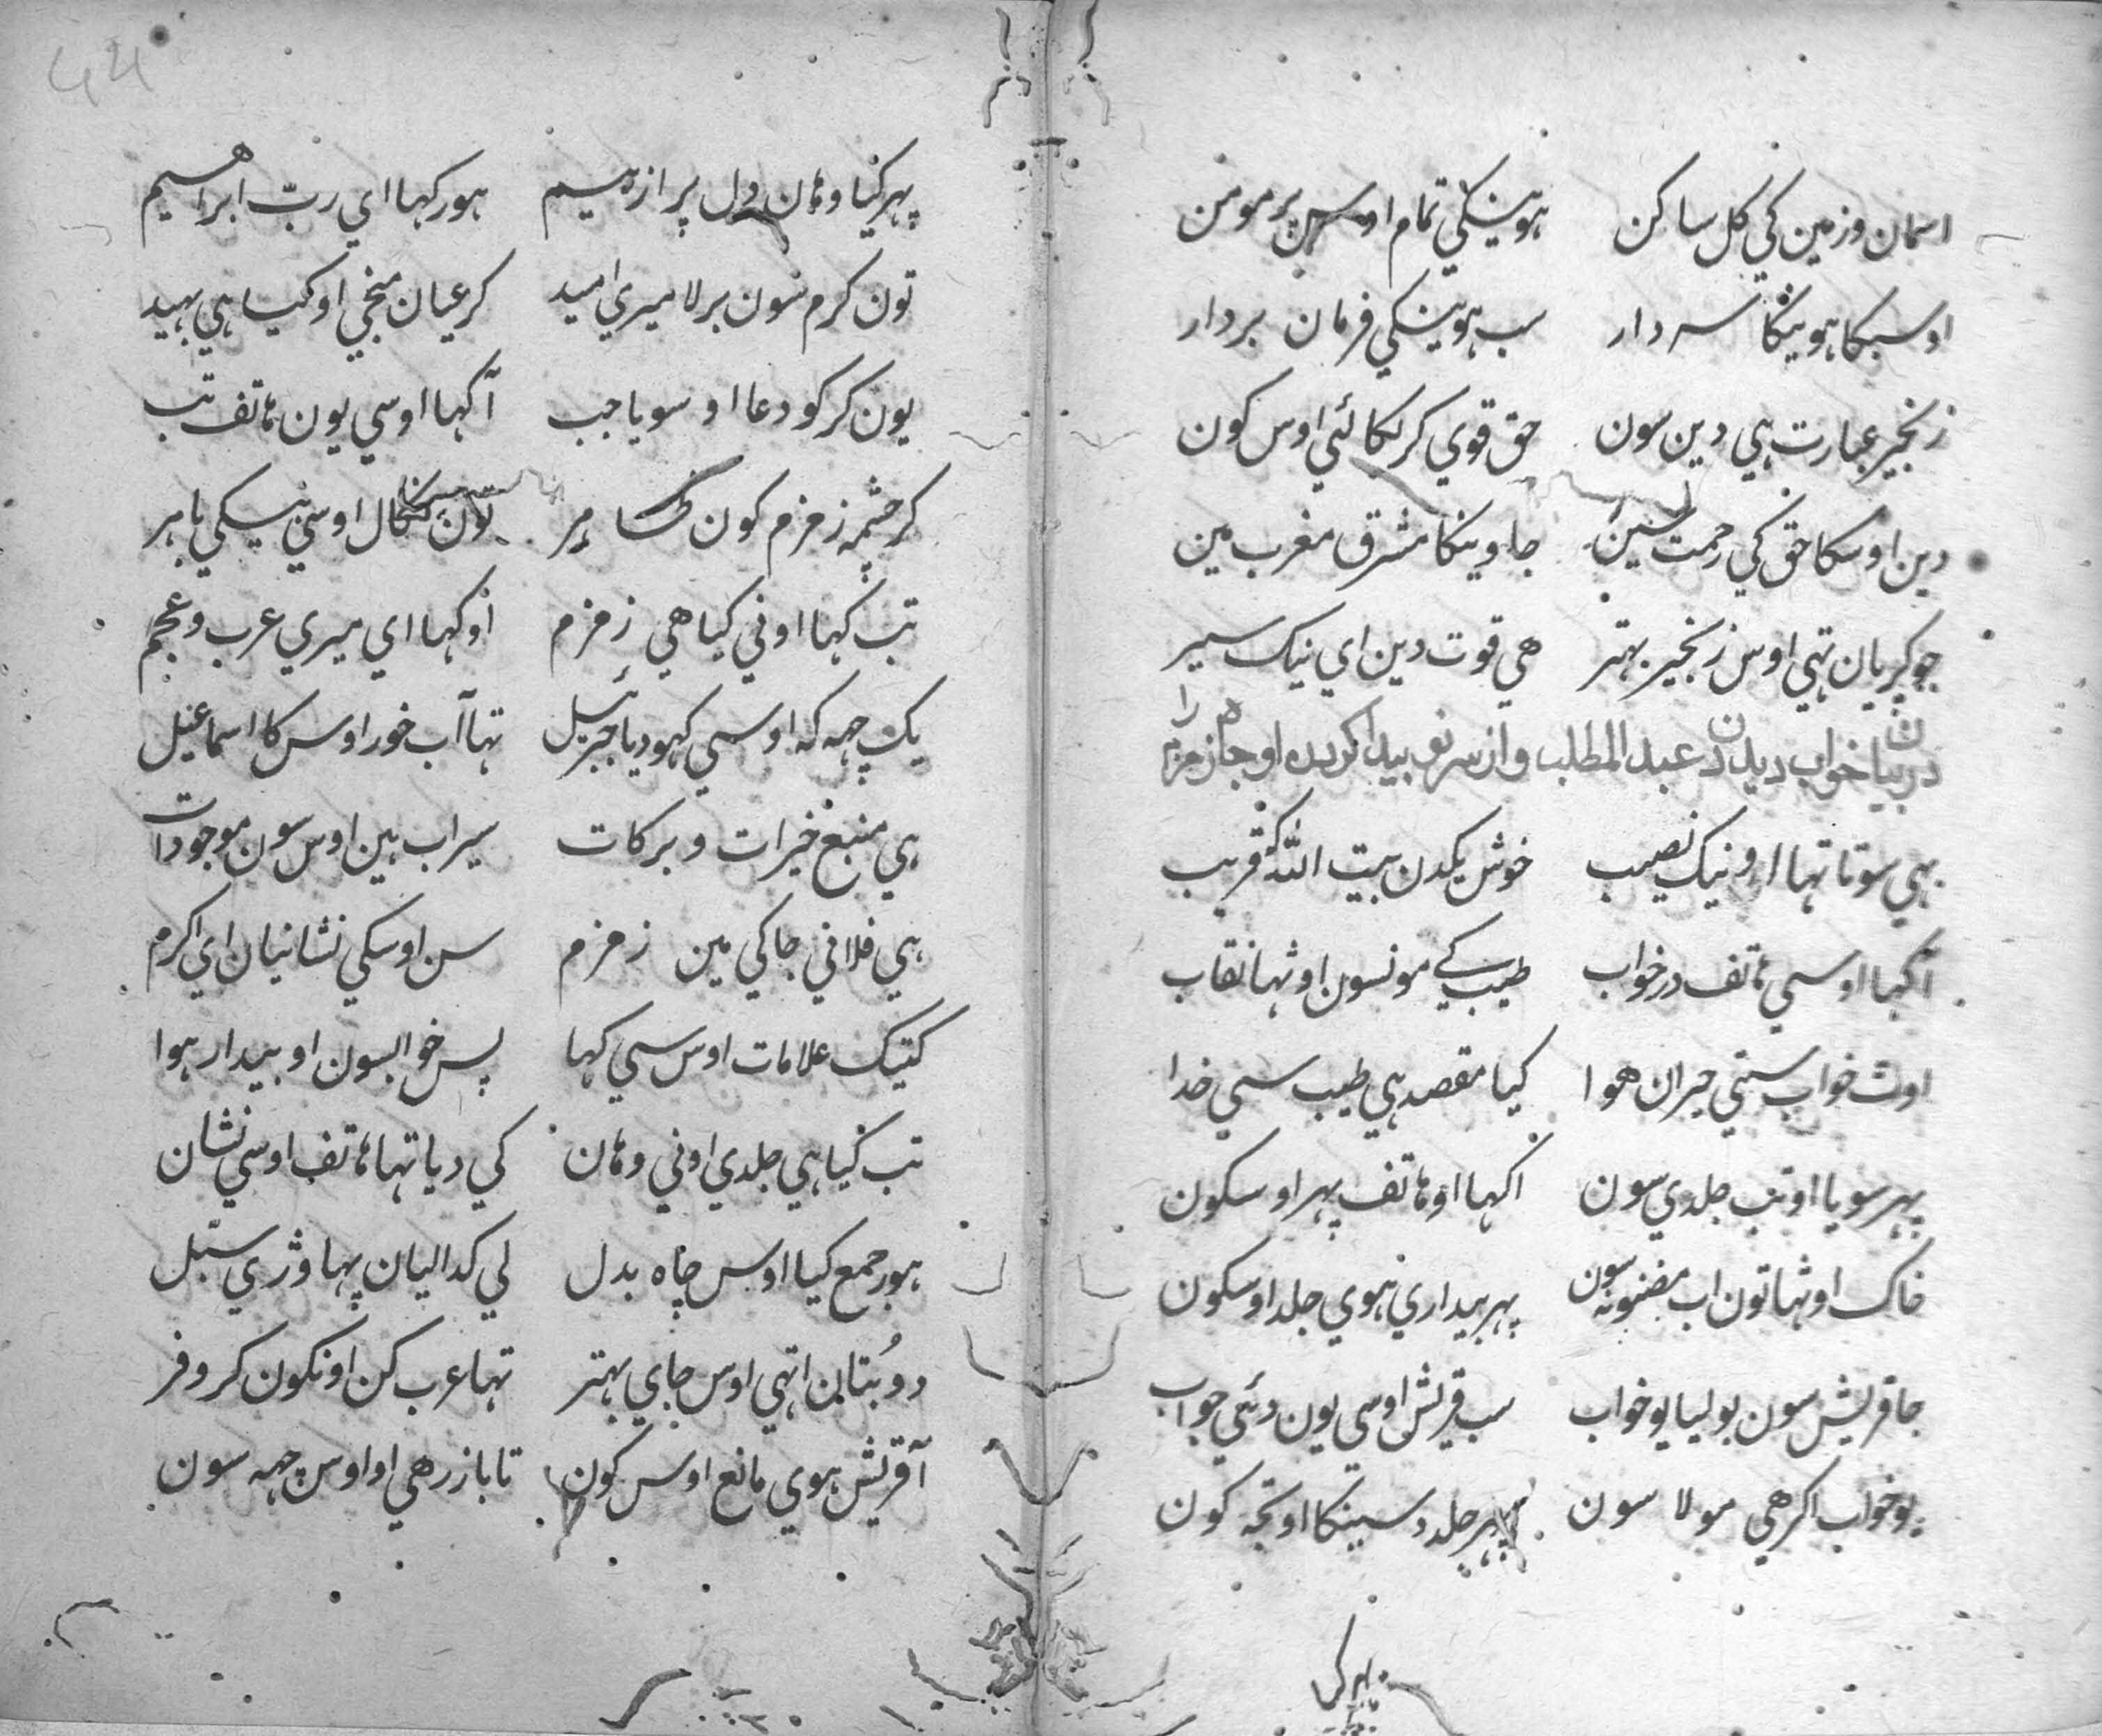 اسمان و زمین کي کل ساکن ہوینگي تمام اوس پر مومن
اوسکا ہوینگا سردار سب ہوینگي فرمان بردار
زنجیر عبارت ہي دین سون حق قوي کر لکائي اوس کون
دین اوسکا حق کي رحمت سین جاوینکا مشرق مغرب مین
جو کریان تہي اوس زنجیر بہتر هي قوت دین اي نیک سیر
در بیان خواب دیدن عبدالمطلب و از سر نو پیدا کردن او چاه زمزم را
بہي سوتا تہا او نیک نصیب خوش یکدن بیت اللہ کي قریب
آ کہا اوسي هاتف در خواب طیب کے مونسون اوٹہا نقاب
اوٹ خواب ستي حیران هوا کیا مقصد ہي طیب سي خدا
پہر سویا او تب جلدي سون آ کہا او هاتف پہر اوسکون
خاک اوٹہا تون اب مضنونہ سون پہر بیداري ہوي جلد اوسکون
جا قریش سون بولیا یو خواب سب قریش اوسي یون دئي جواب
یو خواب اکر هي مولا سون پہر جلد دسینکا او تجہ کون
پہر کیا
پہر کیا وهان دل پر از بیم ہور کہا اي ربّ ابراهیم
تون کرم سون بر لا میري امید کر عیان منجي او کیا ہي بہید
یون کر کو دعا او سویا جب آ کہا اوسي یون هاتف تب
کر چشمہ زمزم کون ظاہر تون نکال اوسي نیکي باہر
تب کہا اوني کیا هي زمزم او کہا اي میري عرب و عجم
یک چہہ کہ اوسي کہودیا جبرئیل تہا آب خور اوس کا اسماعیل
ہي منبع خیرات و برکات سیراب ہین اوس سون موجودات
ہي فلاني جاکي مین زمزم سن اوسکي نشانیان اي اکرم
کتیک علامات اوس سي کہا پس خوابسون او بیدار ہوا
تب کیا ہي جلدي اوني وهان کي دیا تہا هاتف اوسي نشان
ہور جمع کیا اوس چاہ بدل لي کدالیان پہاوڑي سبل
دو بتان اتہي اوس جاي بہتر تہا عرب کن اونکون کر و فر
آ قریش ہوي مانع اوس کون تا باز رهي او اوس چہہ سون